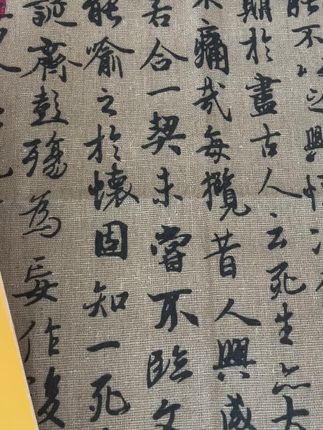 能不以之興懷況
期於盡古人云死生亦大
不痛哉每攬昔人興感
若合一契未嘗不臨文
能喻之於懷固知一死
誕齊彭殤為妄作後